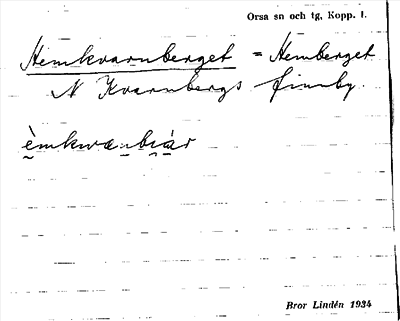 Orsa sn och tg, Kopp. l.
Hemkvarnberget = Hemberget
N Kvarnbergs finnby.
èmkwænbıár
Bror Lindén 1934